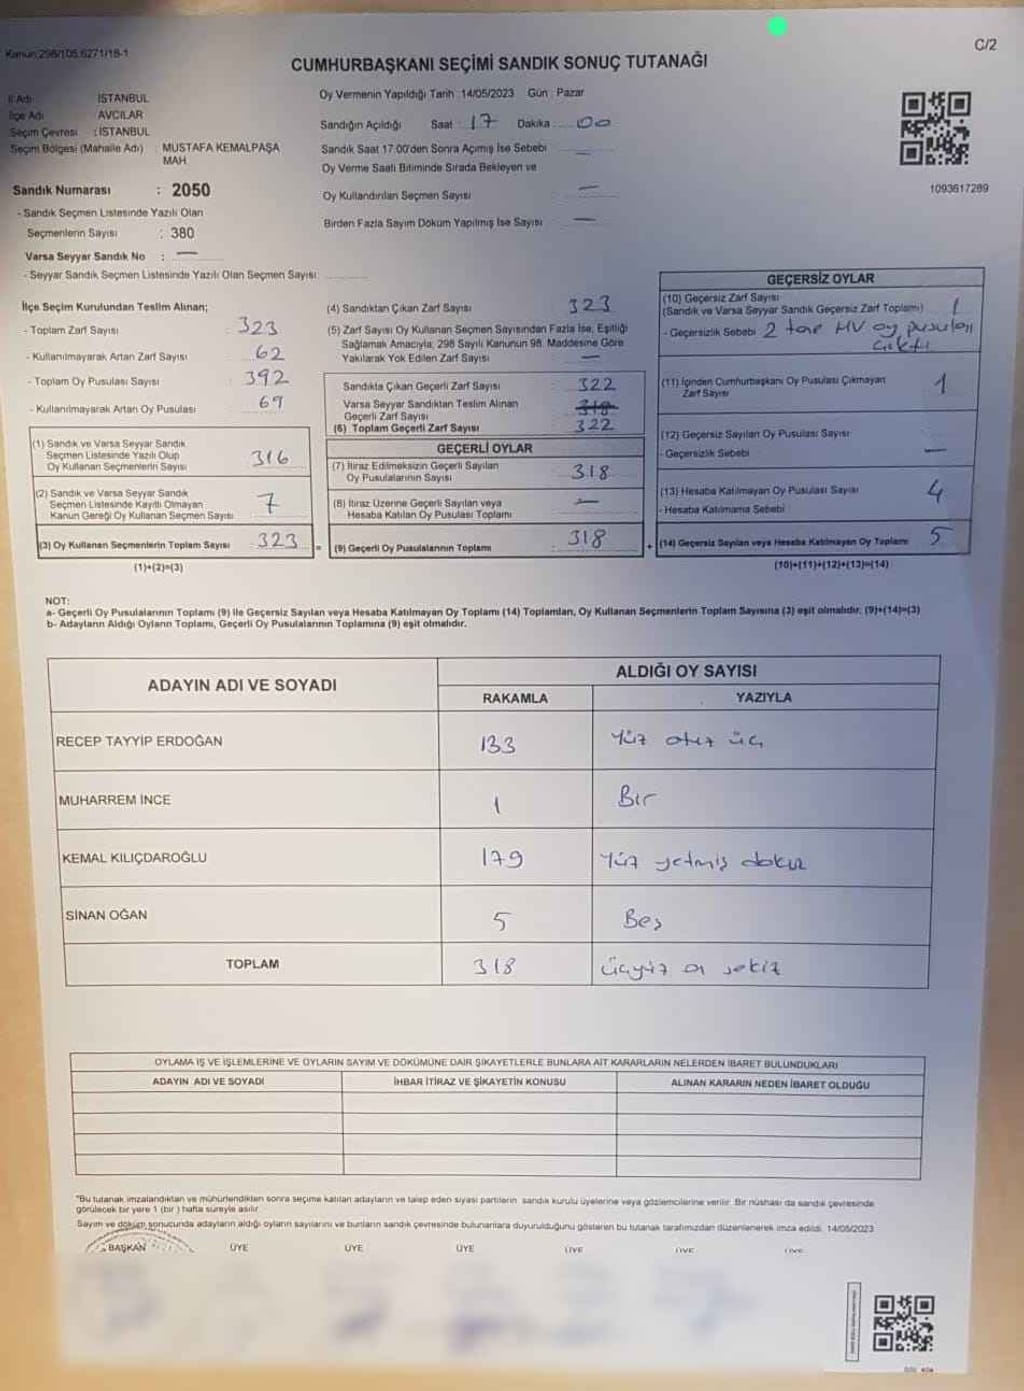 Kanun:298/105,6271/18-1
C/2
CUMHURBAŞKANI SEÇİMİ SANDIK SONUÇ TUTANAĞI
İl Adı : İSTANBUL
İlçe Adı : AVCILAR
Seçim Çevresi : İSTANBUL
Seçim Bölgesi (Mahalle Adı) : MUSTAFA KEMALPAŞA MAH.
Sandık Numarası : 2050
- Sandık Seçmen Listesinde Yazılı Olan
Seçmenlerin Sayısı : 380
Varsa Seyyar Sandık No : —
- Seyyar Sandık Seçmen Listesinde Yazılı Olan Seçmen Sayısı:
Oy Vermenin Yapıldığı Tarih :14/05/2023 Gün : Pazar
Sandığın Açıldığı Saat : 17 Dakika : 00
Sandık Saat 17:00'den Sonra Açımış İse Sebebi —
Oy Verme Saati Bitiminde Sırada Bekleyen ve
Oy Kullandırılan Seçmen Sayısı —
Birden Fazla Sayım Döküm Yapılmış İse Sayısı —
1093617289
İlçe Seçim Kurulundan Teslim Alınan;
- Toplam Zarf Sayısı : 323
- Kullanılmayarak Artan Zarf Sayısı : 62
- Toplam Oy Pusulası Sayısı : 392
- Kullanılmayarak Artan Oy Pusulası : 69
(1) Sandık ve Varsa Seyyar Sandık
Seçmen Listesinde Yazılı Olup
Oy Kullanan Seçmenlerin Sayısı 316
(2) Sandık ve Varsa Seyyar Sandık
Seçmen Listesinde Kayıtlı Olmayan
Kanun Gereği Oy Kullanan Seçmen Sayısı 7
(3) Oy Kullanan Seçmenlerin Toplam Sayısı : 323
(1)+(2)=(3)
(4) Sandıktan Çıkan Zarf Sayısı : 323
(5) Zarf Sayısı Oy Kullanan Seçmen Sayısından Fazla İse, Eşitliği
Sağlamak Amacıyla, 298 Sayılı Kanunun 98. Maddesine Göre
Yakılarak Yok Edilen Zarf Sayısı —
Sandıkta Çıkan Geçerli Zarf Sayısı : 322
Varsa Seyyar Sandıktan Teslim Alınan
Geçerli Zarf Sayısı 318
(6) Toplam Geçerli Zarf Sayısı : 322
GEÇERLİ OYLAR
(7) İtiraz Edilmeksizin Geçerli Sayılan
Oy Pusulalarının Sayısı : 318
(8) İtiraz Üzerine Geçerli Sayılan veya
Hesaba Katılan Oy Pusulası Toplamı : —
(9) Geçerli Oy Pusulalarının Toplamı : 318
GEÇERSİZ OYLAR
(10) Geçersiz Zarf Sayısı
(Sandık ve Varsa Seyyar Sandık Geçersiz Zarf Toplamı) 1
- Geçersizlik Sebebi 2 tane MV oy pusulası
çıktı
(11) İçinden Cumhurbaşkanı Oy Pusulası Çıkmayan
Zarf Sayısı 1
(12) Geçersiz Sayılan Oy Pusulası Sayısı
- Geçersizlik Sebebi —
(13) Hesaba Katılmayan Oy Pusulası Sayısı 4
- Hesaba Katılmama Sebebi
(14) Geçersiz Sayılan veya Hesaba Katılmayan Oy Toplamı 5
(10)+(11)+(12)+(13)=(14)
NOT:
a- Geçerli Oy Pusulalarının Toplamı (9) ile Geçersiz Sayılan veya Hesaba Katılmayan Oy Toplamı (14) Toplamları, Oy Kullanan Seçmenlerin Toplam Sayısına (3) eşit olmalıdır. (9)+(14)=(3)
b- Adayların Aldığı Oyların Toplamı, Geçerli Oy Pusulalarının Toplamına (9) eşit olmalıdır.
ADAYIN ADI VE SOYADI ALDIĞI OY SAYISI
RAKAMLA YAZIYLA
RECEP TAYYİP ERDOĞAN 133 Yüz otuz üç
MUHARREM İNCE 1 Bir
KEMAL KILIÇDAROĞLU 179 Yüz yetmiş dokuz
SİNAN OĞAN 5 Beş
TOPLAM 318 üçyüz on sekiz
OYLAMA İŞ VE İŞLEMLERİNE VE OYLARIN SAYIM VE DÖKÜMÜNE DAİR ŞİKAYETLERLE BUNLARA AİT KARARLARIN NELERDEN İBARET BULUNDUKLARI
ADAYIN ADI VE SOYADI İHBAR İTİRAZ VE ŞİKAYETİN KONUSU ALINAN KARARIN NEDEN İBARET OLDUĞU
"Bu tutanak imzalandıktan ve mühürlendikten sonra seçime katılan adayların ve talep eden siyasi partilerin sandık kurulu üyelerine veya gözlemcilerine verilir. Bir nüshası da sandık çevresinde
görülecek bir yere 1 (bir) hafta süreyle asılır.
Sayım ve döküm sonucunda adayların aldığı oyların sayılarını ve bunların sandık çevresinde bulunanlara duyurulduğunu gösteren bu tutanak tarafımızdan düzenlenerek imza edildi. 14/05/2023
BAŞKAN ÜYE ÜYE ÜYE ÜYE ÜYE ÜYE